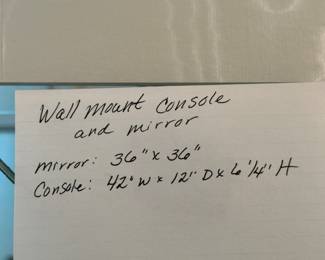 Wall mount Console
and mirror
mirror: 36" x 36"
Console: 42" W x 12" D x 6 1/4" H